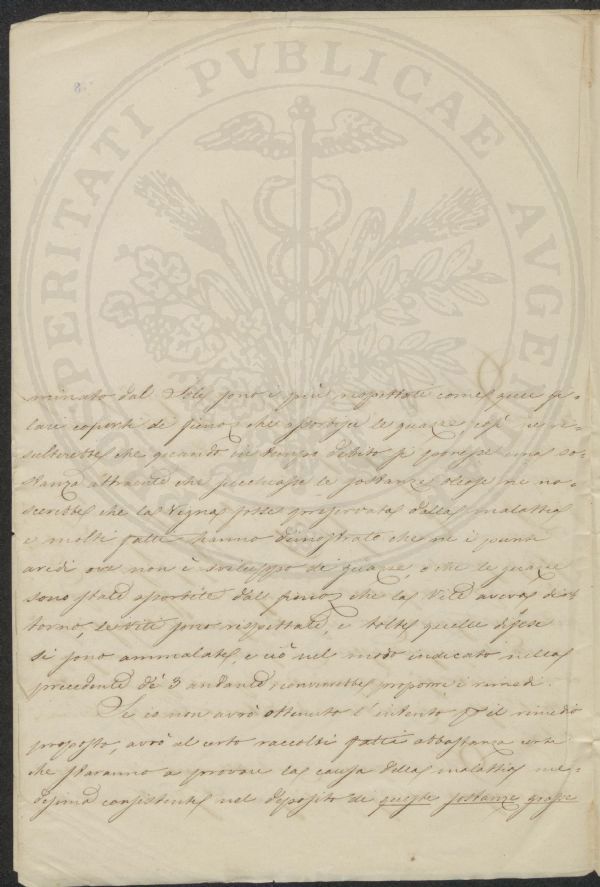 8
PROSPERITATI PVBLICAE AVGENDAE
minato dal Sole sono i più rispettate come quei fi-
lari coperti di fieno che assorbisse le guazze, così ne ri-
sulterebbe che quando in tempo debito si ponesse una so-
stanza attraente che succhiasse le sostanze oleose ne na-
scerebbe che la Vigna fosse preservata dalla malattia
e molti fatti hanno dimostrato che ne i punti
aredi ove non è sviluppo di guazze, o che le guazze
sono state assorbite dal fieno che la Vite aveva d'in-
torno, le viti sono rispettate, e tolte quelle difese
si sono ammalate, e ciò nel modo indicato nella
precedente de' 3 andante, converrebbe proporre i rimedi.
Se io non avrò ottenuto l'intento il rimedio
proposto, avrò al certo raccolti fatti abbastanza certi
che staranno a provare la causa della malattia me-
desima consistente nel deposito di queste sostanze grasse